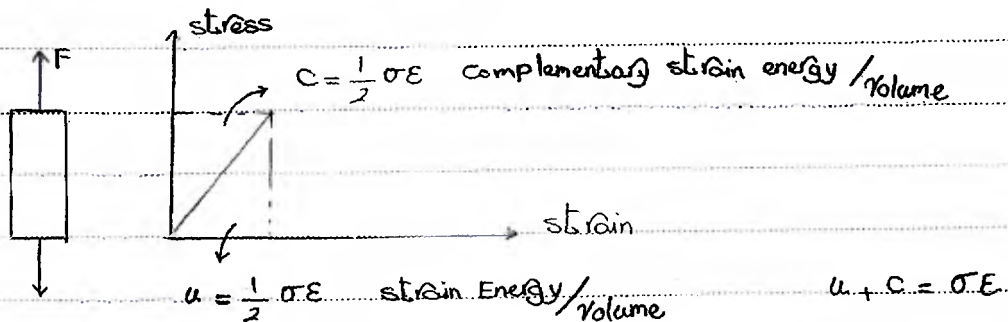 stress
F
C = 1/2 σε complementary strain energy/volume
strain
u = 1/2 σε strain Energy/volume u + C = σε